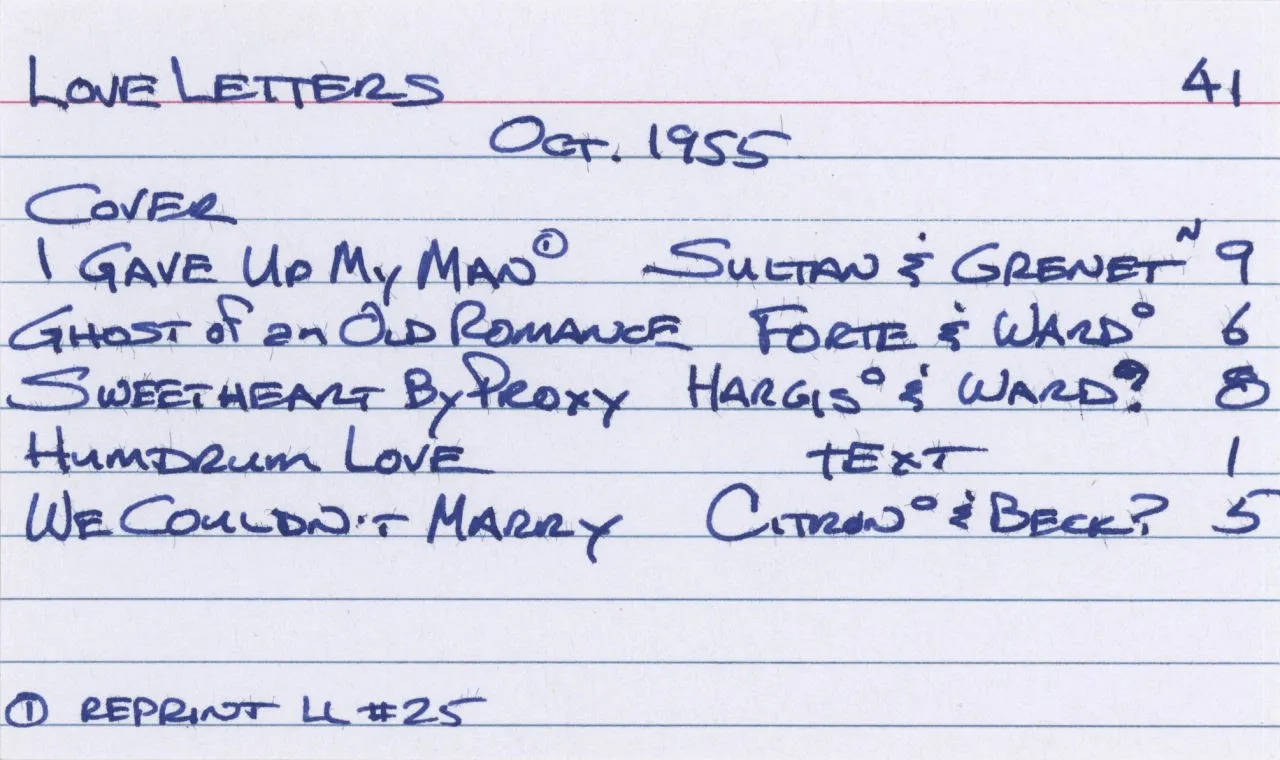 LOVE LETTERS 41
OCT. 1955
COVER
I GAVE UP MY MAN ① SULTAN & GRENET ᴺ 9
GHOST of an OLD ROMANCE FORTE & WARD° 6
SWEETHEART BY PROXY HARGIS° & WARD°? 8
HUMDRUM LOVE TEXT 1
WE COULDN'T MARRY CITRON° & BECK? 5
① REPRINT LL #25